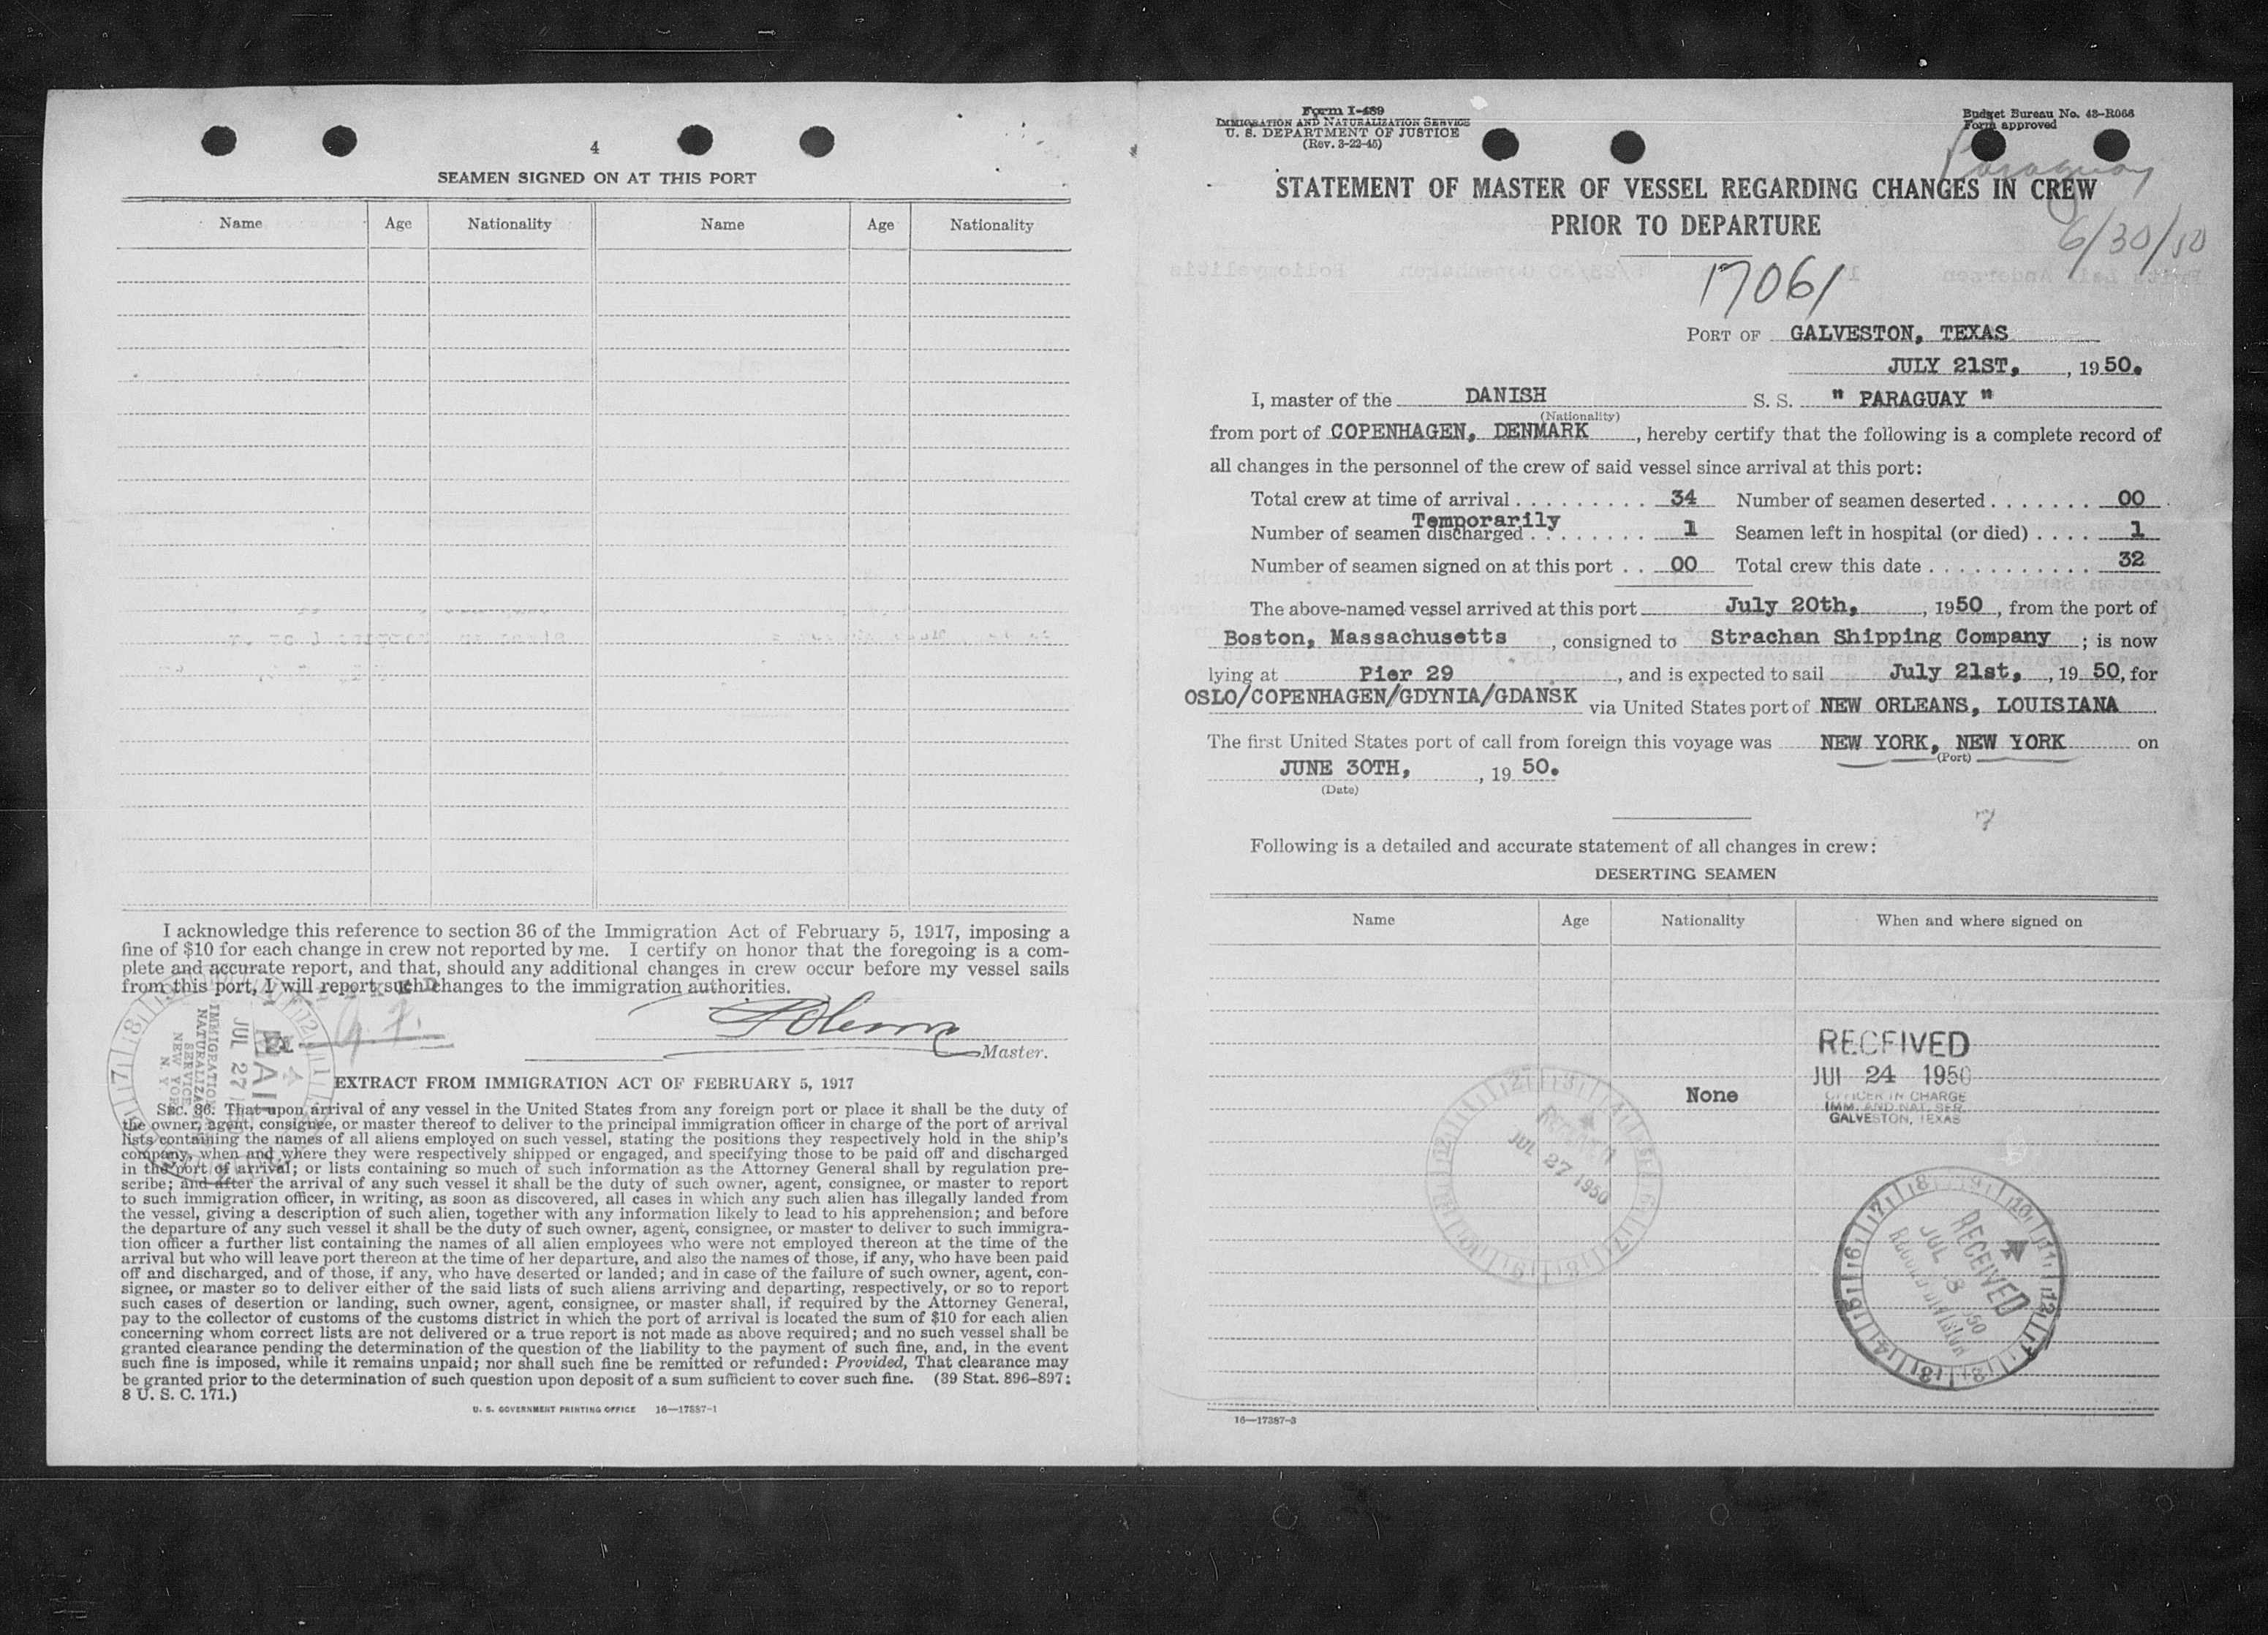 4
SEAMEN SIGNED ON AT THIS PORT
Name Age Nationality Name Age Nationality
I acknowledge this reference to section 36 of the Immigration Act of February 5, 1917, imposing a
fine of $10 for each change in crew not reported by me. I certify on honor that the foregoing is a com-
plete and accurate report, and that, should any additional changes in crew occur before my vessel sails
from this port, I will report such changes to the immigration authorities.
Master.
IMMIGRATION
NATURALIZATION
SERVICE
NEW YORK
N Y
JUL 27
EXTRACT FROM IMMIGRATION ACT OF FEBRUARY 5, 1917
SEC. 36. That upon arrival of any vessel in the United States from any foreign port or place it shall be the duty of
the owner, agent, consignee, or master thereof to deliver to the principal immigration officer in charge of the port of arrival
lists containing the names of all aliens employed on such vessel, stating the positions they respectively hold in the ship's
company, when and where they were respectively shipped or engaged, and specifying those to be paid off and discharged
in the port of arrival; or lists containing so much of such information as the Attorney General shall by regulation pre-
scribe; and after the arrival of any such vessel it shall be the duty of such owner, agent, consignee, or master to report
to such immigration officer, in writing, as soon as discovered, all cases in which any such alien has illegally landed from
the vessel, giving a description of such alien, together with any information likely to lead to his apprehension; and before
the departure of any such vessel it shall be the duty of such owner, agent, consignee, or master to deliver to such immigra-
tion officer a further list containing the names of all alien employees who were not employed thereon at the time of the
arrival but who will leave port thereon at the time of her departure, and also the names of those, if any, who have been paid
off and discharged, and of those, if any, who have deserted or landed; and in case of the failure of such owner, agent, con-
signee, or master so to deliver either of the said lists of such aliens arriving and departing, respectively, or so to report
such cases of desertion or landing, such owner, agent, consignee, or master shall, if required by the Attorney General,
pay to the collector of customs of the customs district in which the port of arrival is located the sum of $10 for each alien
concerning whom correct lists are not delivered or a true report is not made as above required; and no such vessel shall be
granted clearance pending the determination of the question of the liability to the payment of such fine, and, in the event
such fine is imposed, while it remains unpaid; nor shall such fine be remitted or refunded: Provided, That clearance may
be granted prior to the determination of such question upon deposit of a sum sufficient to cover such fine. (39 Stat. 896–897;
8 U. S. C. 171.)
U. S. GOVERNMENT PRINTING OFFICE 16—17387-1
Form I-489
IMMIGRATION AND NATURALIZATION SERVICE
U. S. DEPARTMENT OF JUSTICE
(Rev. 3-22-45)
Budget Bureau No. 43-R066
Form approved
Paraguay
6/30/50
STATEMENT OF MASTER OF VESSEL REGARDING CHANGES IN CREW
PRIOR TO DEPARTURE
17061
PORT OF GALVESTON, TEXAS
JULY 21ST, , 19 50.
I, master of the DANISH S. S. " PARAGUAY "
(Nationality)
from port of COPENHAGEN, DENMARK , hereby certify that the following is a complete record of
all changes in the personnel of the crew of said vessel since arrival at this port:
Total crew at time of arrival . . . . . . . . . . 34 Number of seamen deserted . . . . . . . 00
Temporarily
Number of seamen discharged . . . . . . . . 1 Seamen left in hospital (or died) . . . . 1
Number of seamen signed on at this port . . 00 Total crew this date . . . . . . . . . . . . 32
The above-named vessel arrived at this port July 20th, , 1950 , from the port of
Boston, Massachusetts , consigned to Strachan Shipping Company ; is now
lying at Pier 29 , and is expected to sail July 21st, , 19 50, for
OSLO/COPENHAGEN/GDYNIA/GDANSK via United States port of NEW ORLEANS, LOUISIANA
The first United States port of call from foreign this voyage was NEW YORK, NEW YORK on
(Port)
JUNE 30TH, , 19 50.
(Date)
7
Following is a detailed and accurate statement of all changes in crew:
DESERTING SEAMEN
Name Age Nationality When and where signed on
None
RECEIVED
JUL 24 1950
OFFICER IN CHARGE
IMM. AND NAT. SER.
GALVESTON, TEXAS
RECEIVED
JUL 27 1950
RECEIVED
16—17387-3